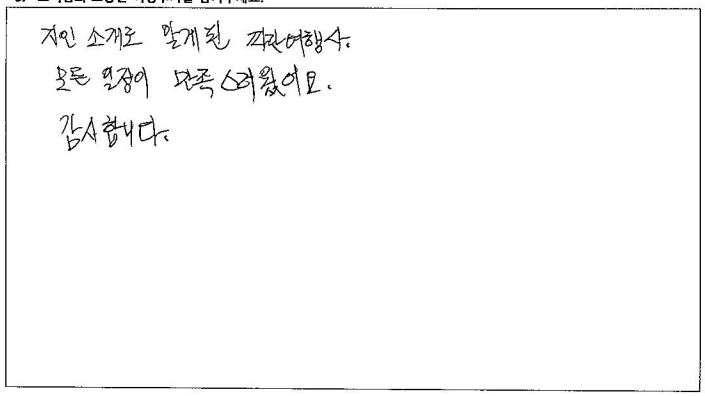 지인 소개로 알게된 파란여행사.
모든 일정이 만족스러웠어요.
감사합니다.